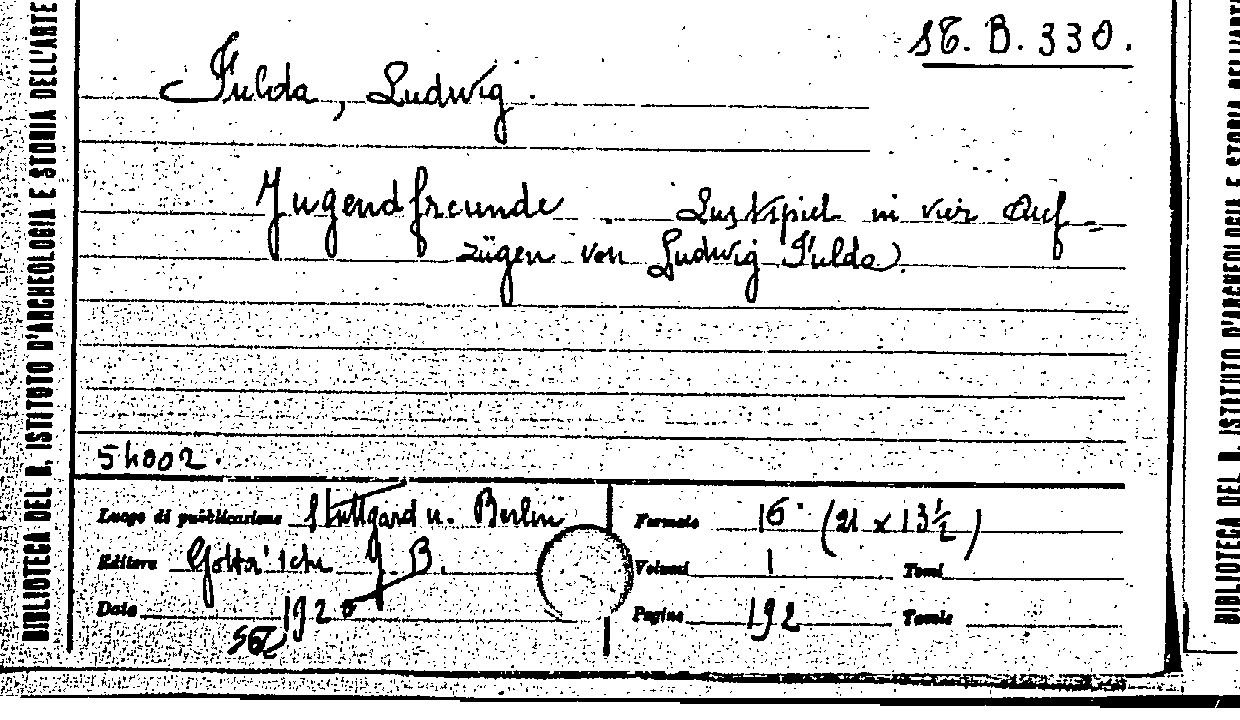 St. B. 330.
Fulda, Ludwig.
Jugendfreunde. Lustspiel in vier Auf=
zügen von Ludwig Fulda).
54002.
Luogo di pubblicazione Stuttgard u. Berlin
Formato 16° (21 x 13 ½)
Editore Cotta'sche B.
Volumi 1 Tomi
Data 1920
Pagine 192 Tavole
BIBLIOTECA DEL R. ISTITUTO D'ARCHEOLOGIA E STORIA DELL'ARTE
BIBLIOTECA DEL R. ISTITUTO D'ARCHEOLOGIA E STORIA DELL'ARTE